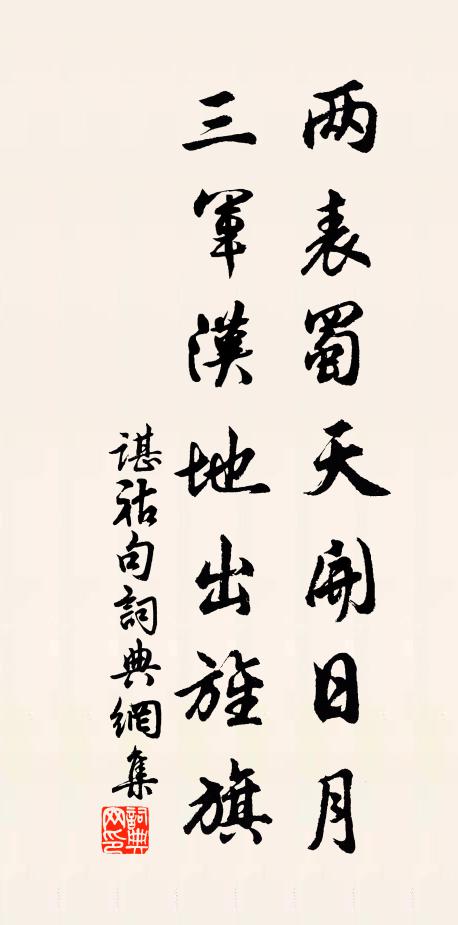 两表蜀天開日月
三軍漢地出旌旗
谌祜句詞典網集
詞典网印